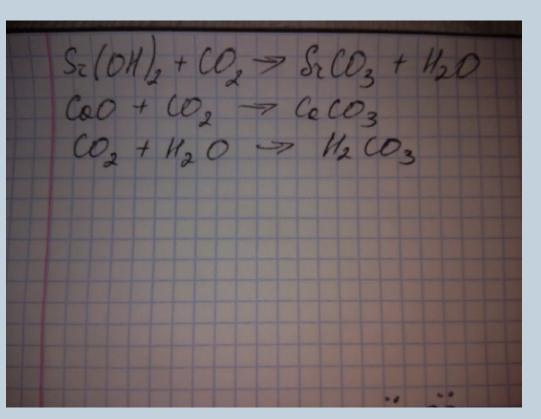 Sr(OH)₂ + CO₂ → SrCO₃ + H₂O
CaO + CO₂ → CaCO₃
CO₂ + H₂O → H₂CO₃